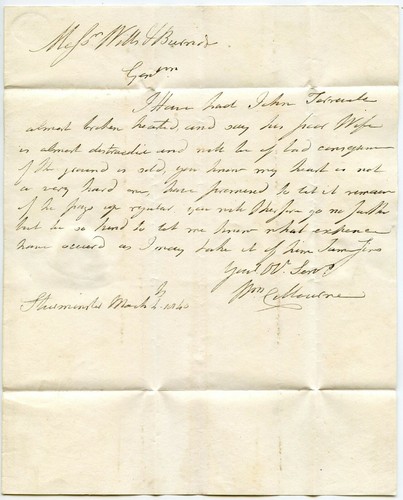 Messrs Wills & 
Gentmn
I Have had John
almost broken hearted, and say his poor Wife
is almost distracted and will be of bad consequence
if the ground is sold, you know my heart is not
a very hard one, have promised to let it remain
if he pays up regular, you will therefore go no further
but be so kind to let me know what expence
have occured as I may take it of him I am Gents
Your Ob Servt
Wm Colbourne
Sturminster March 2, 1840